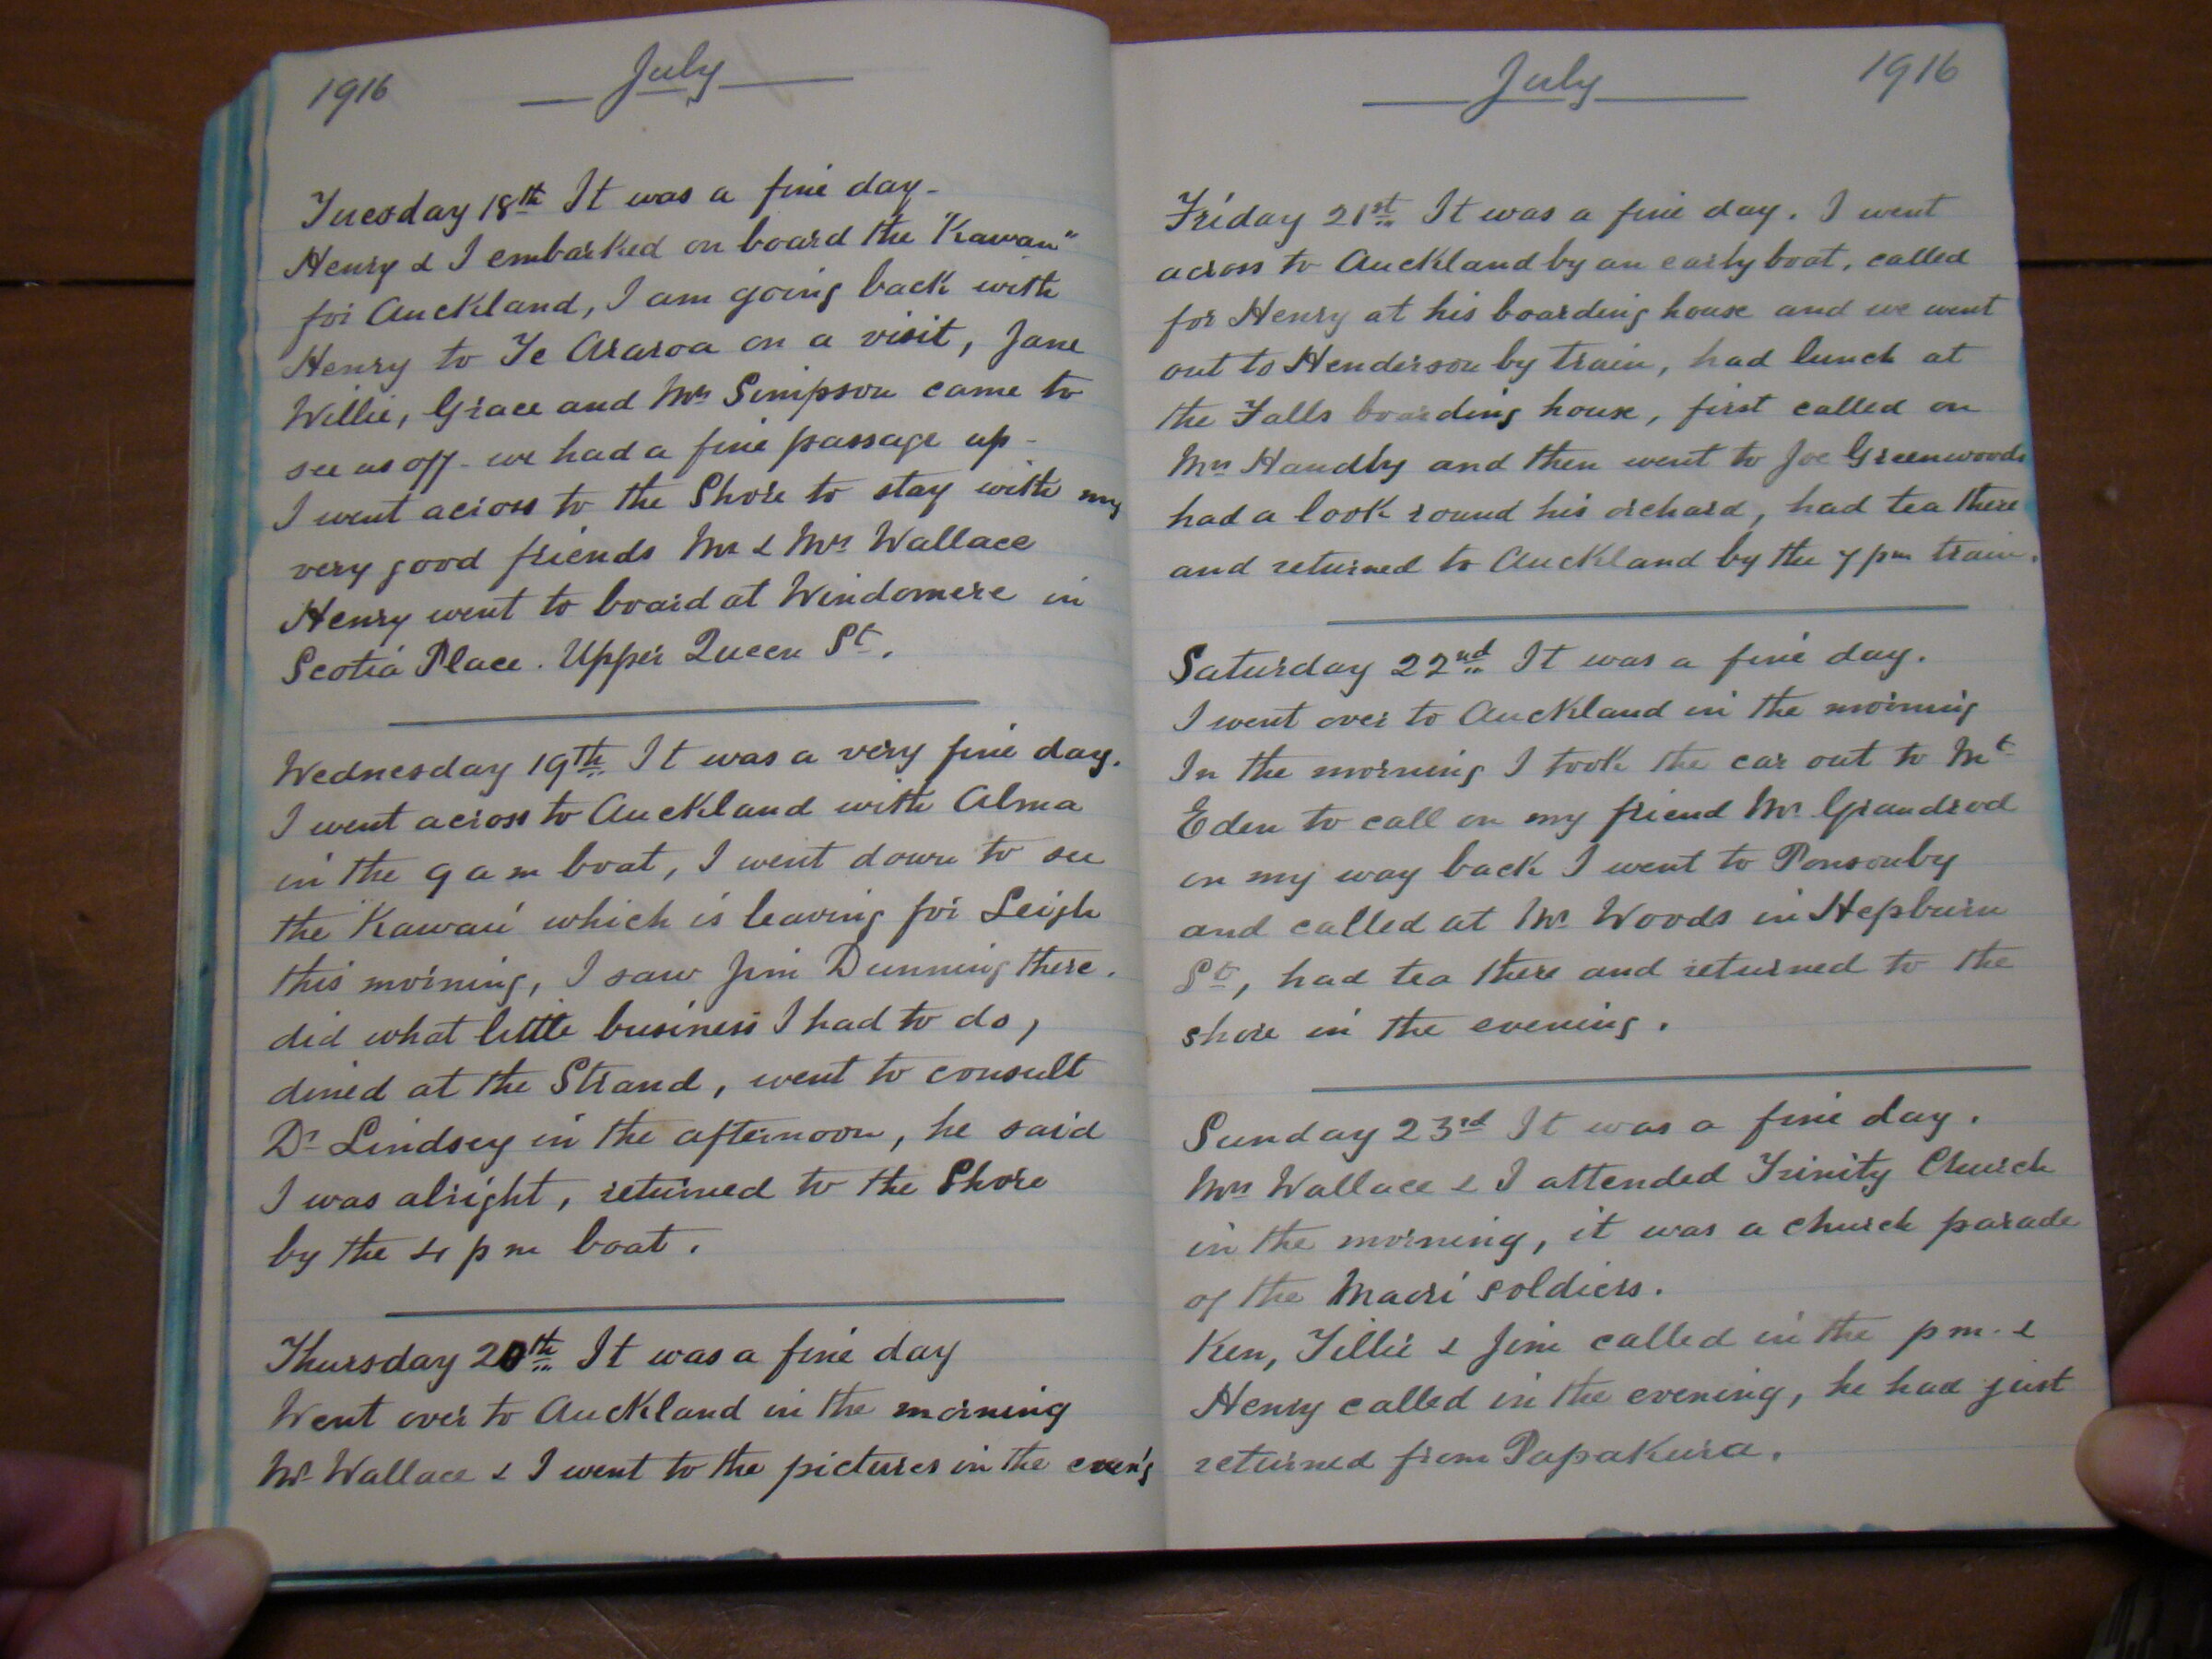 1916 July
Tuesday 18th It was a fine day -
Henry & I embarked on board the "Kawau"
for Auckland, I am going back with
Henry to Te Araroa on a visit, Jane
Willie, Grace and Mrs Simpson came to
see us off - we had a fine passage up -
I went across to the Shore to stay with my
very good friends Mr & Mrs Wallace
Henry went to board at Windomere in
Scotia Place. Upper Queen St.
Wednesday 19th It was a very fine day.
I went across to Auckland with Alma
in the 9 a m boat, I went down to see
the "Kawau" which is leaving for Leigh
this morning, I saw Jim Dunning there.
did what little business I had to do,
dined at the Strand, went to consult
Dr Lindsey in the afternoon, he said
I was alright, returned to the Shore
by the 4 p m boat.
Thursday 20th It was a fine day
Went over to Auckland in the morning
Mr Wallace & I went to the pictures in the even'g
July 1916
Friday 21st It was a fine day. I went
across to Auckland by an early boat, called
for Henry at his boarding house and we went
out to Henderson by train, had lunch at
the Falls boarding house, first called on
Mrs Handby and then went to Joe Greenwoods
had a look round his orchard, had tea there
and returned to Auckland by the 7 pm train.
Saturday 22nd It was a fine day.
I went over to Auckland in the morning
In the morning I took the car out to Mt
Eden to call on my friend Mr Grandrod
on my way back I went to Ponsonby
and called at Mr Woods in Hepburn
St, had tea there and returned to the
shore in the evening.
Sunday 23rd It was a fine day.
Mrs Wallace & I attended Trinity Church
in the morning, it was a church parade
of the Maori soldiers.
Ken, Tillie & Jim called in the p m. &
Henry called in the evening, he had just
returned from Papakura.